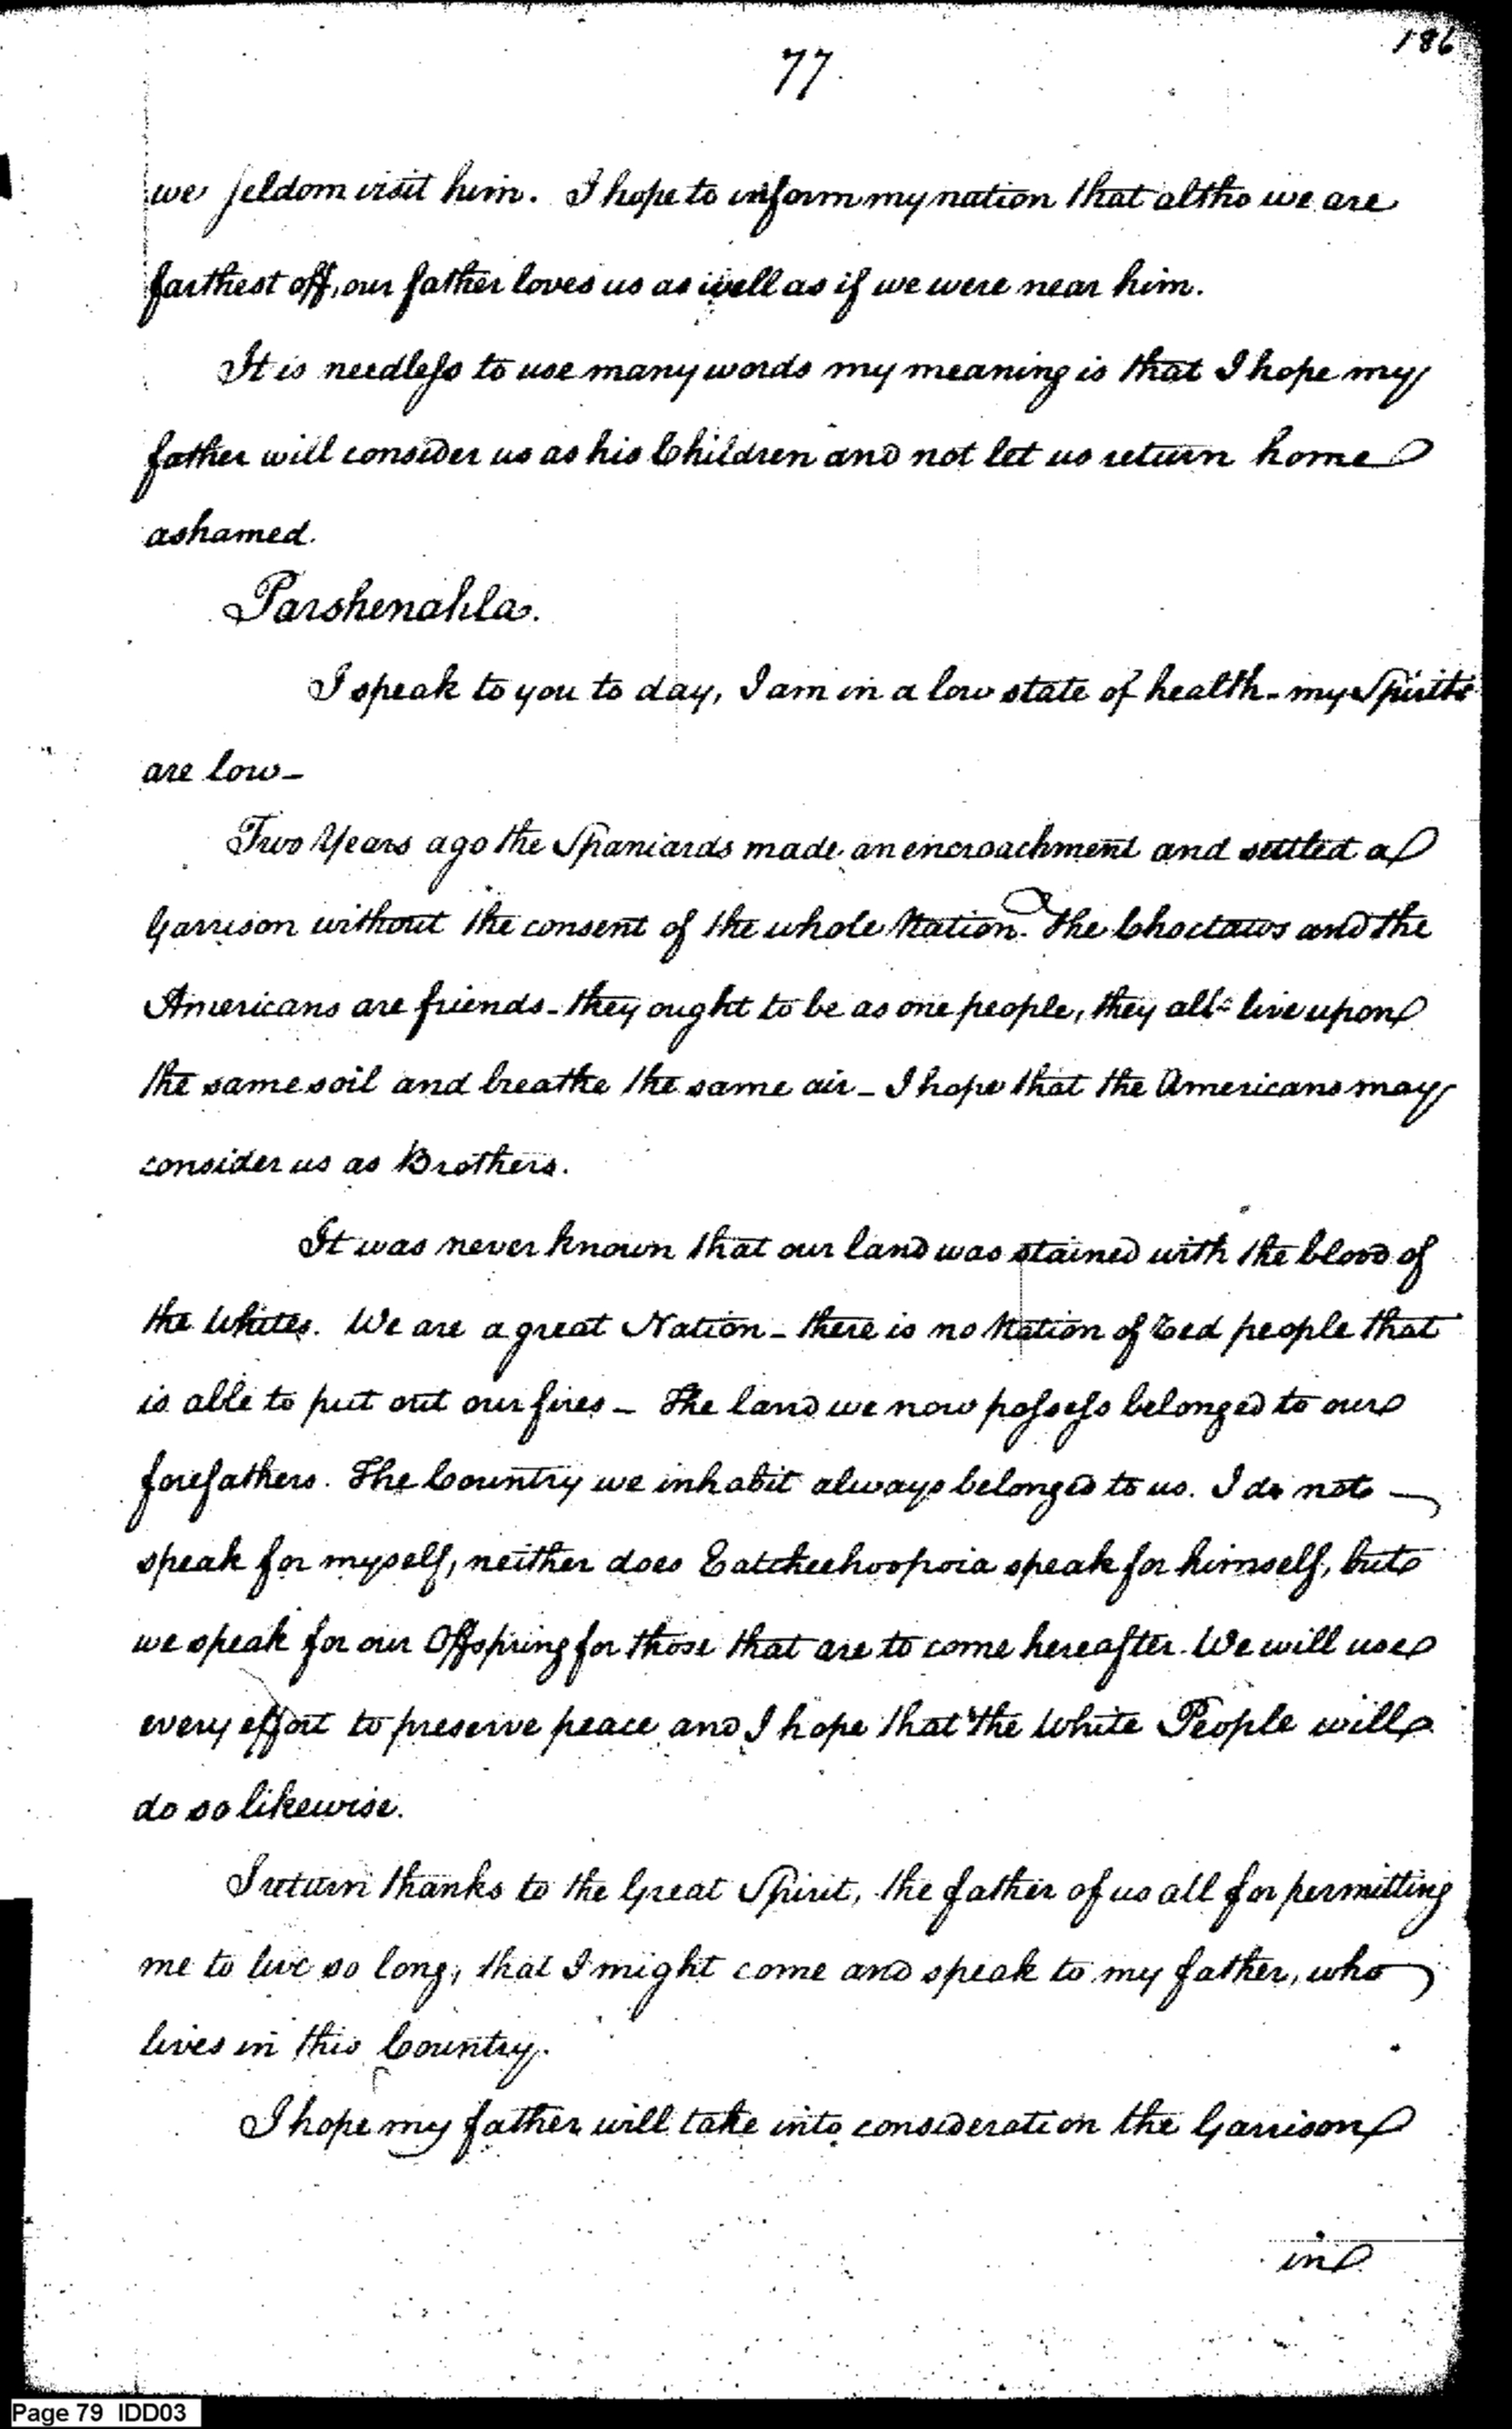 186
77.
we seldom visit him. I hope to inform my nation that altho we are
farthest off, our father loves us as well as if we were near him.
It is needless to use many words my meaning is that I hope my
father will consider us as his Children and not let us return home
ashamed.
Parshenahla.
I speak to you to day, I am in a low state of health - my Spirits
are low -
Two Years ago the Spaniards made an encroachment and settled a
Garrison without the consent of the whole Nation. The Choctaws and the
Americans are friends - they ought to be as one people, they all live upon
the same soil and breathe the same air - I hope that the Americans may
consider us as Brothers.
It was never known that our land was stained with the blood of
the Whites. We are a great Nation - there is no Nation of red people that
is able to put out our fires - The land we now possess belonged to our
forefathers. The Country we inhabit always belonged to us. I do not
speak for myself, neither does Eatcheehoopoia speak for himself, but
we speak for our Offspring for those that are to come hereafter. We will use
every effort to preserve peace and I hope that the White People will
do so likewise.
I return thanks to the Great Spirit, the father of us all for permitting
me to live so long, that I might come and speak to my father, who
lives in this Country.
I hope my father will take into consideration the Garrison
in
Page 79 IDD03